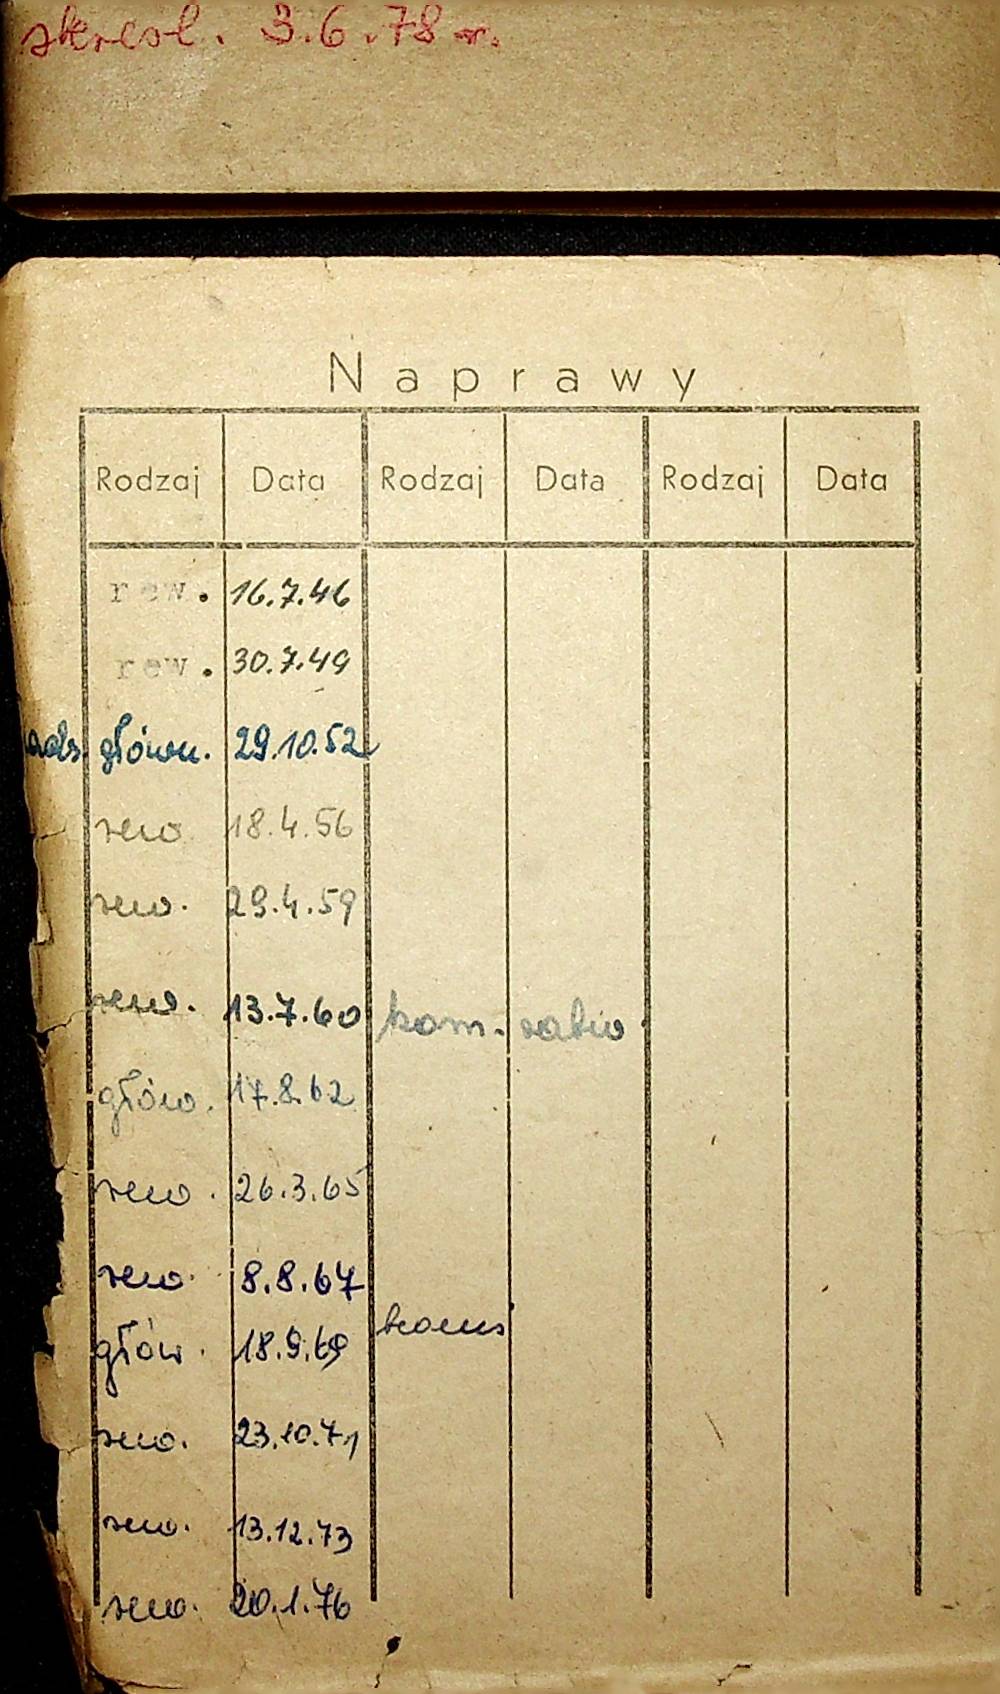 skreśl. 3.6.78 r.
Naprawy
Rodzaj Data Rodzaj Data Rodzaj Data
rew. 16.7.46
rew. 30.7.49
główn. 29.10.52
rew 18.4.56
rew. 29.4.59
rew. 13.7.60 kom. radio
głów. 17.8.62
rew. 26.3.65
rew. 8.8.67
głów. 18.9.69
rew. 23.10.71
rew. 13.12.73
rew. 20.1.76